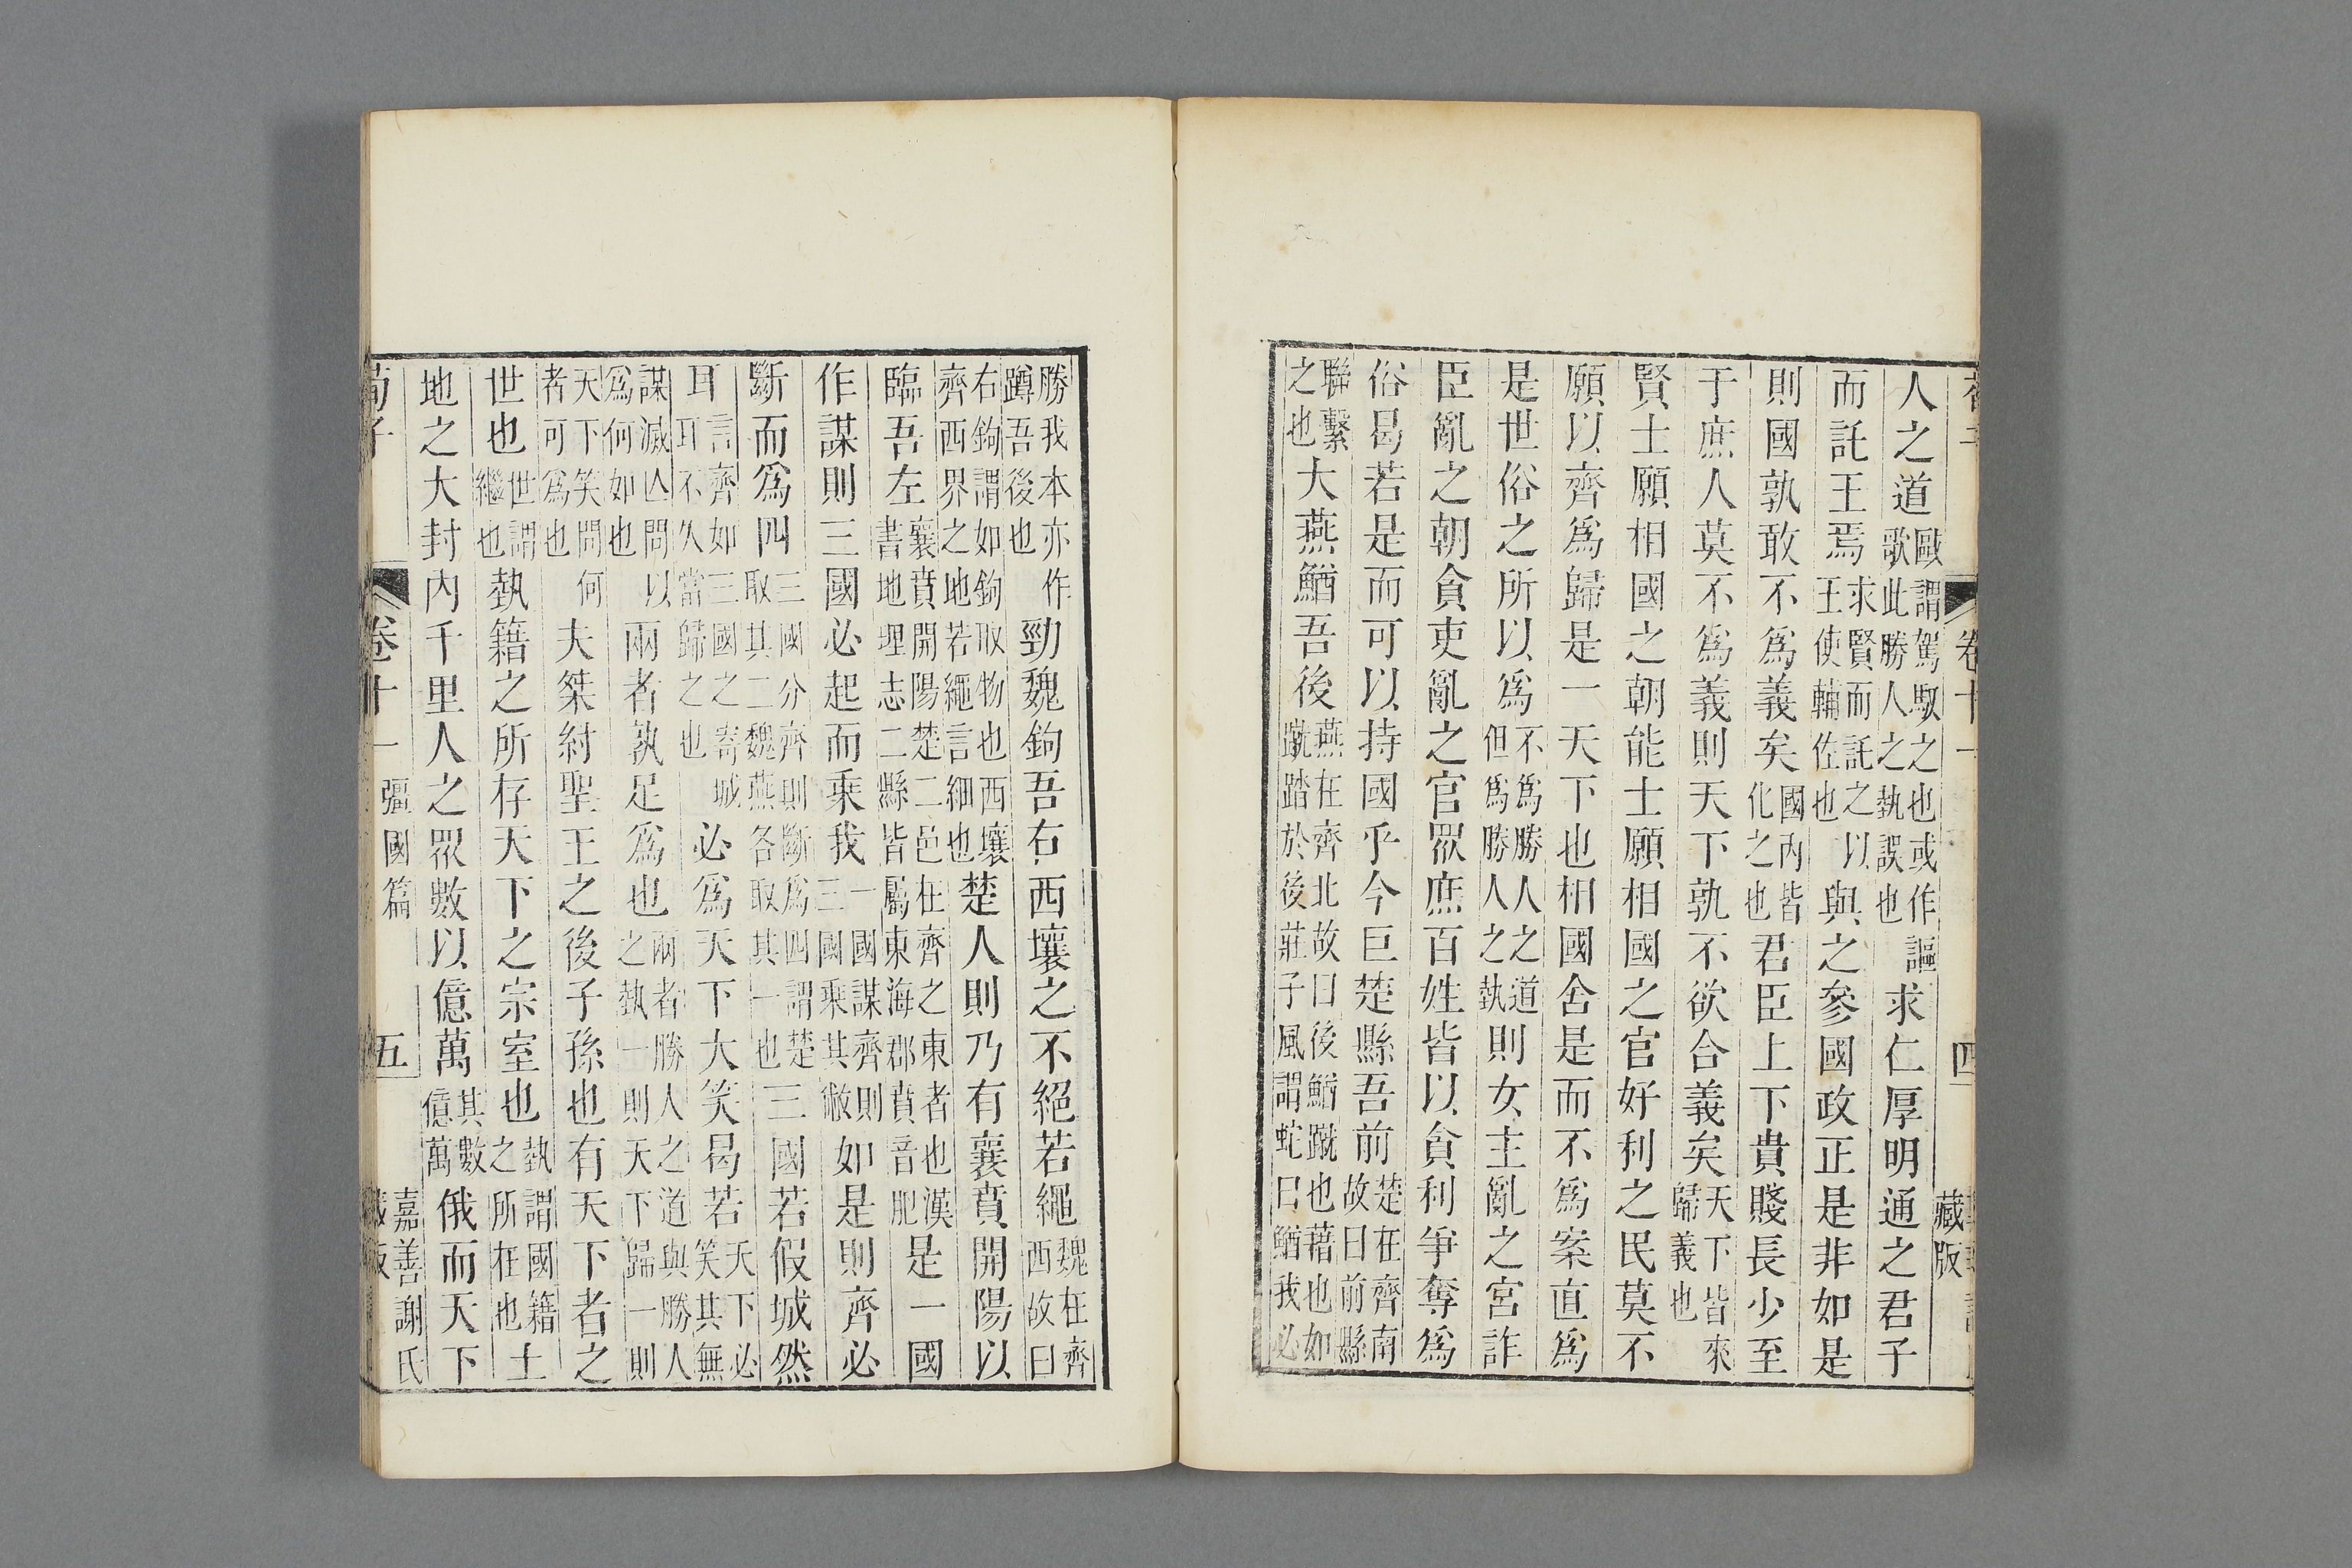 卷十一
四
藏版
人之道歐謂駕馭之也或作謳歌此勝人之埶誤也求仁厚明通之君子
而託王焉求賢而託之以王使輔佐也與之參國政正是非如是
則國孰敢不爲義矣國內皆化之也君臣上下貴賤長少至
于庶人莫不爲義則天下孰不欲合義矣天下皆來歸義也
賢士願相國之朝能士願相國之官好利之民莫不
願以齊爲歸是一天下也相國舍是而不爲案直爲
是世俗之所以爲不爲勝人之道但爲勝人之埶則女主亂之宮詐
臣亂之朝貪吏亂之官眾庶百姓皆以貪利爭奪爲
俗曷若是而可以持國乎今巨楚縣吾前楚在齊南故曰前縣
聯繫之也大燕鰌吾後燕在齊北故曰後鰌蹴也藉也如蹴踏於後莊子風謂蛇曰鰌我必
勝我本亦作蹲吾後也勁魏鉤吾右西壤之不絕若繩魏在齊西故曰
右鉤謂如鉤取物也西壤齊西界之地若繩言細也楚人則乃有襄賁開陽以
臨吾左襄賁開陽楚二邑在齊之東者也漢書地理志二縣皆屬東海郡賁音肥是一國
作謀則三國必起而乘我一國謀齊則三國乘其敝如是則齊必
斷而爲四三國分齊則斷爲四謂楚取其二魏燕各取其一也三國若假城然
耳言齊如三國之寄城耳不久當歸之也必爲天下大笑曷若天下必笑其無
謀滅亾問以爲何如也兩者孰足爲也兩者勝人之道與勝人之埶一則天下歸一則
天下笑問何者可爲也夫桀紂聖王之後子孫也有天下者之
世也世謂繼也埶籍之所存天下之宗室也埶謂國籍之所在也土
地之大封內千里人之眾數以億萬其數億萬俄而天下
荀子
卷十一
彊國篇
五
嘉善謝氏
藏版